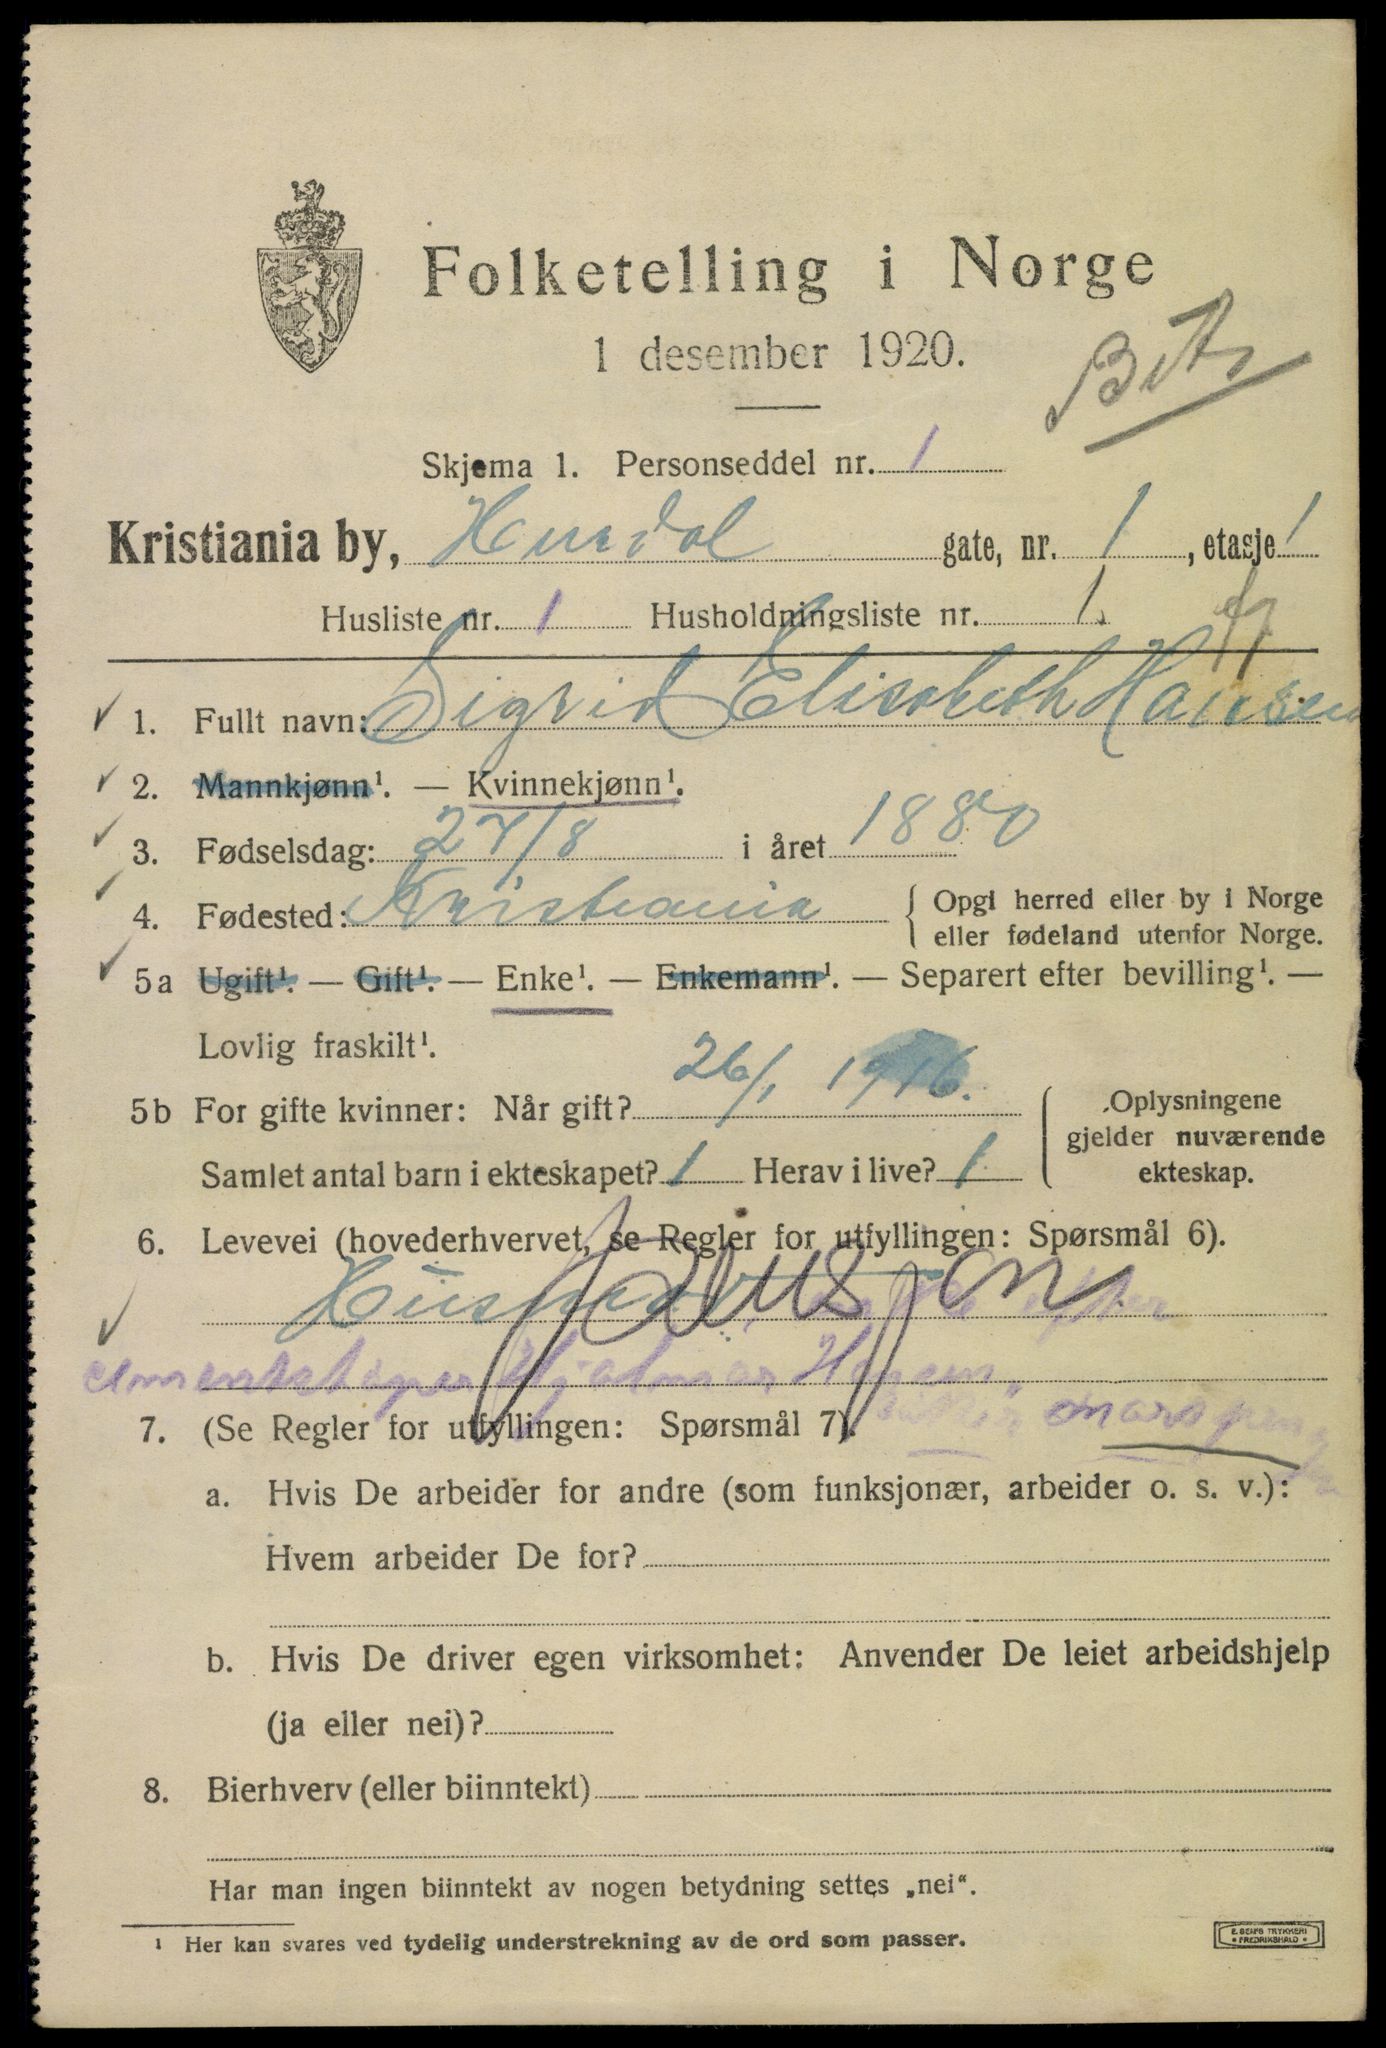 Folketelling i Norge
1 desember 1920.
Skjema 1. Personseddel nr. 1
Kristiania by, Hurdal gate, nr. 1, etasje 1
Husliste nr. 1 Husholdningsliste nr. 1.
1. Fullt navn: Sigrid Elisabeth Hansen
2. Mannkjønn¹. — Kvinnekjønn¹.
3. Fødselsdag: 27/8 i året 1880
4. Fødested: Kristiania { Opgi herred eller by i Norge
eller fødeland utenfor Norge.
5a Ugift¹. — Gift¹. — Enke¹. — Enkemann¹. — Separert efter bevilling¹. —
Lovlig fraskilt¹.
5b For gifte kvinner: Når gift? 26/1 1916. { Oplysningene
gjelder nuværende
ekteskap.
Samlet antal barn i ekteskapet? 1 Herav i live? 1
6. Levevei (hovederhvervet, se Regler for utfyllingen: Spørsmål 6).
enke efter
Hjalmar Hansen
7. (Se Regler for utfyllingen: Spørsmål 7).
a. Hvis De arbeider for andre (som funksjonær, arbeider o. s. v.):
Hvem arbeider De for?
b. Hvis De driver egen virksomhet: Anvender De leiet arbeidshjelp
(ja eller nei)?
8. Bierhverv (eller biinntekt)
Har man ingen biinntekt av nogen betydning settes „nei“.
¹ Her kan svares ved tydelig understrekning av de ord som passer.
E. SEM'S TRYKKERI
• FREDRIKSHALD •